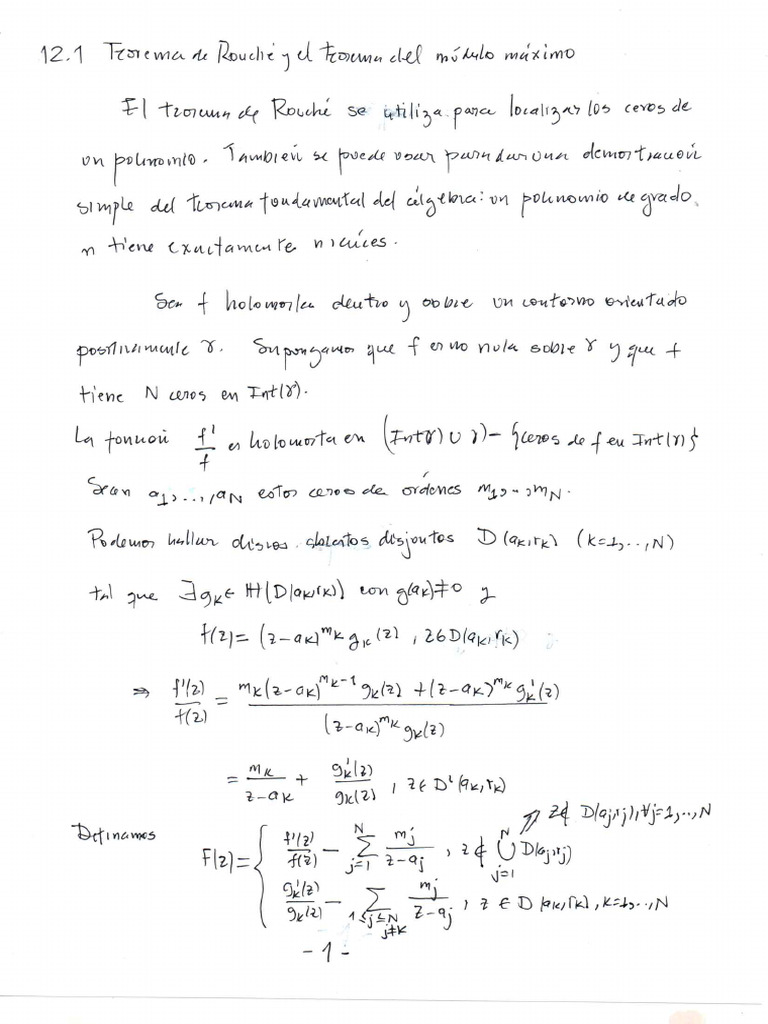 12.1 Teorema de Rouché y el teorema del módulo máximo
El teorema de Rouché se utiliza para localizar los ceros de
un polinomio. También se puede usar para dar una demostración
simple del teorema fundamental del álgebra: un polinomio de grado
n tiene exactamente n raíces.
Sea f holomorfa dentro y sobre un contorno orientado
positivamente γ. Supongamos que f es no nula sobre γ y que f
tiene N ceros en Int(γ).
La función f'/f es holomorfa en (Int γ) ∪ γ) - {ceros de f en Int(γ)}
Sean a₁,...,a_N estos ceros de órdenes m₁,..,m_N.
Podemos hallar discos abiertos disjuntos D(a_k,r_k) (k=1,..,N)
tal que ∃g_k ∈ H(D(a_k,r_k)) con g(a_k)≠0 y
f(z) = (z-a_k)^{m_k} g_k(z), z∈D(a_k,r_k)
⇒ f'(z)/f(z) = (m_k(z-a_k)^{m_k-1} g_k(z) + (z-a_k)^{m_k} g_k'(z)) / ((z-a_k)^{m_k} g_k(z))
= m_k/(z-a_k) + g_k'(z)/g_k(z), z∈D'(a_k,r_k)
⇒ z∉ D(a_j,r_j), ∀j=1,..,N
Definamos F(z) = { f'(z)/f(z) - Σ_{j=1}^{N} m_j/(z-a_j), z∉ ∪_{j=1}^{N} D(a_j,r_j)
g_k'(z)/g_k(z) - Σ_{1≤j≤N, j≠k} m_j/(z-a_j), z∈D(a_k,r_k), k=1,..,N
-1-